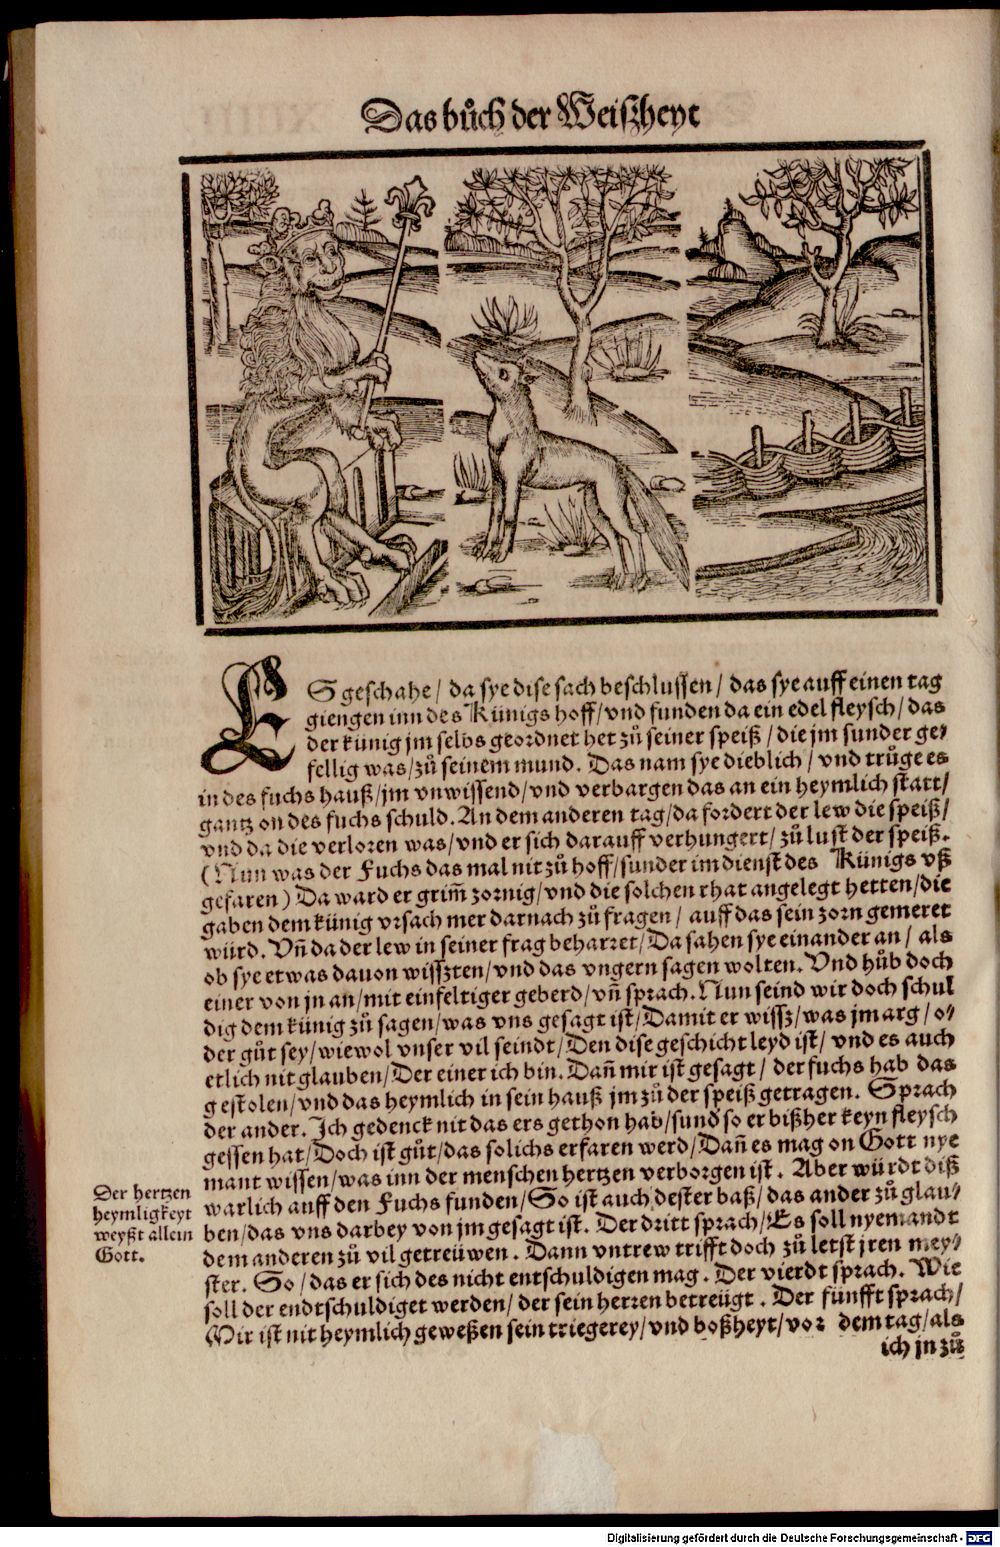 Das bůch der Weiſzheyt
ES geschahe / da sye dise sach beschlussen / das sye auff einen tag
giengen inn des Künigs hoff / vnd funden da ein edel fleysch / das
der künig jm selbs geordnet het zů seiner speiß / die jm sunder ge⸗
fellig was / zů seinem mund. Das nam sye dieblich / vnd trůge es
in des fuchs hauß / jm vnwissend / vnd verbargen das an ein heymlich statt /
gantz on des fuchs schuld. An dem anderen tag / da fordert der lew die speiß /
vnd da die verloren was / vnd er sich darauff verhungert / zů lust der speiß.
(Nun was der Fuchs das mal nit zů hoff / sunder im dienst des Künigs vß
gefaren) Da ward er grim̃ zornig / vnd die solchen rhat angelegt hetten / die
gaben dem künig vrsach mer darnach zů fragen / auff das sein zorn gemeret
würd. Vñ da der lew in seiner frag beharret / Da sahen sye einander an / als
ob sye etwas dauon wisszten / vnd das vngern sagen wolten. Vnd hůb doch
einer von jn an / mit einfeltiger geberd / vñ sprach. Nun seind wir doch schul
dig dem künig zů sagen / was vns gesagt ist / Damit er wissz / was jm arg / o⸗
der gůt sey / wiewol vnser vil seindt / Den dise geschicht leyd ist / vnd es auch
etlich nit glauben / Der einer ich bin. Dañ mir ist gesagt / der fuchs hab das
gestolen / vnd das heymlich in sein hauß jm zů der speiß getragen. Sprach
der ander. Ich gedenck nit das ers gethon hab / sund so er bißher keyn fleysch
gessen hat / Doch ist gůt / das solichs erfaren werd / Dañ es mag on Gott nye
mant wissen / was inn der menschen hertzen verborgen ist. Aber würdt diß
warlich auff den Fuchs funden / So ist auch dester baß / das ander zů glau⸗
ben / das vns darbey von jm gesagt ist. Der dritt sprach / Es soll nyemandt
dem anderen zů vil getreüwen. Dann vntrew trifft doch zů letst jren mey⸗
ster. So / das er sich des nicht entschuldigen mag. Der vierdt sprach. Wie
soll der endtschuldiget werden / der sein herren betreügt. Der fünfft sprach /
Mir ist nit heymlich geweßen sein triegerey / vnd boßheyt / vor dem tag / als
ich jn zů
Der hertzen
heymligkeyt
weyßt allein
Gott.
Digitalisierung gefördert durch die Deutsche Forschungsgemeinschaft - DFG